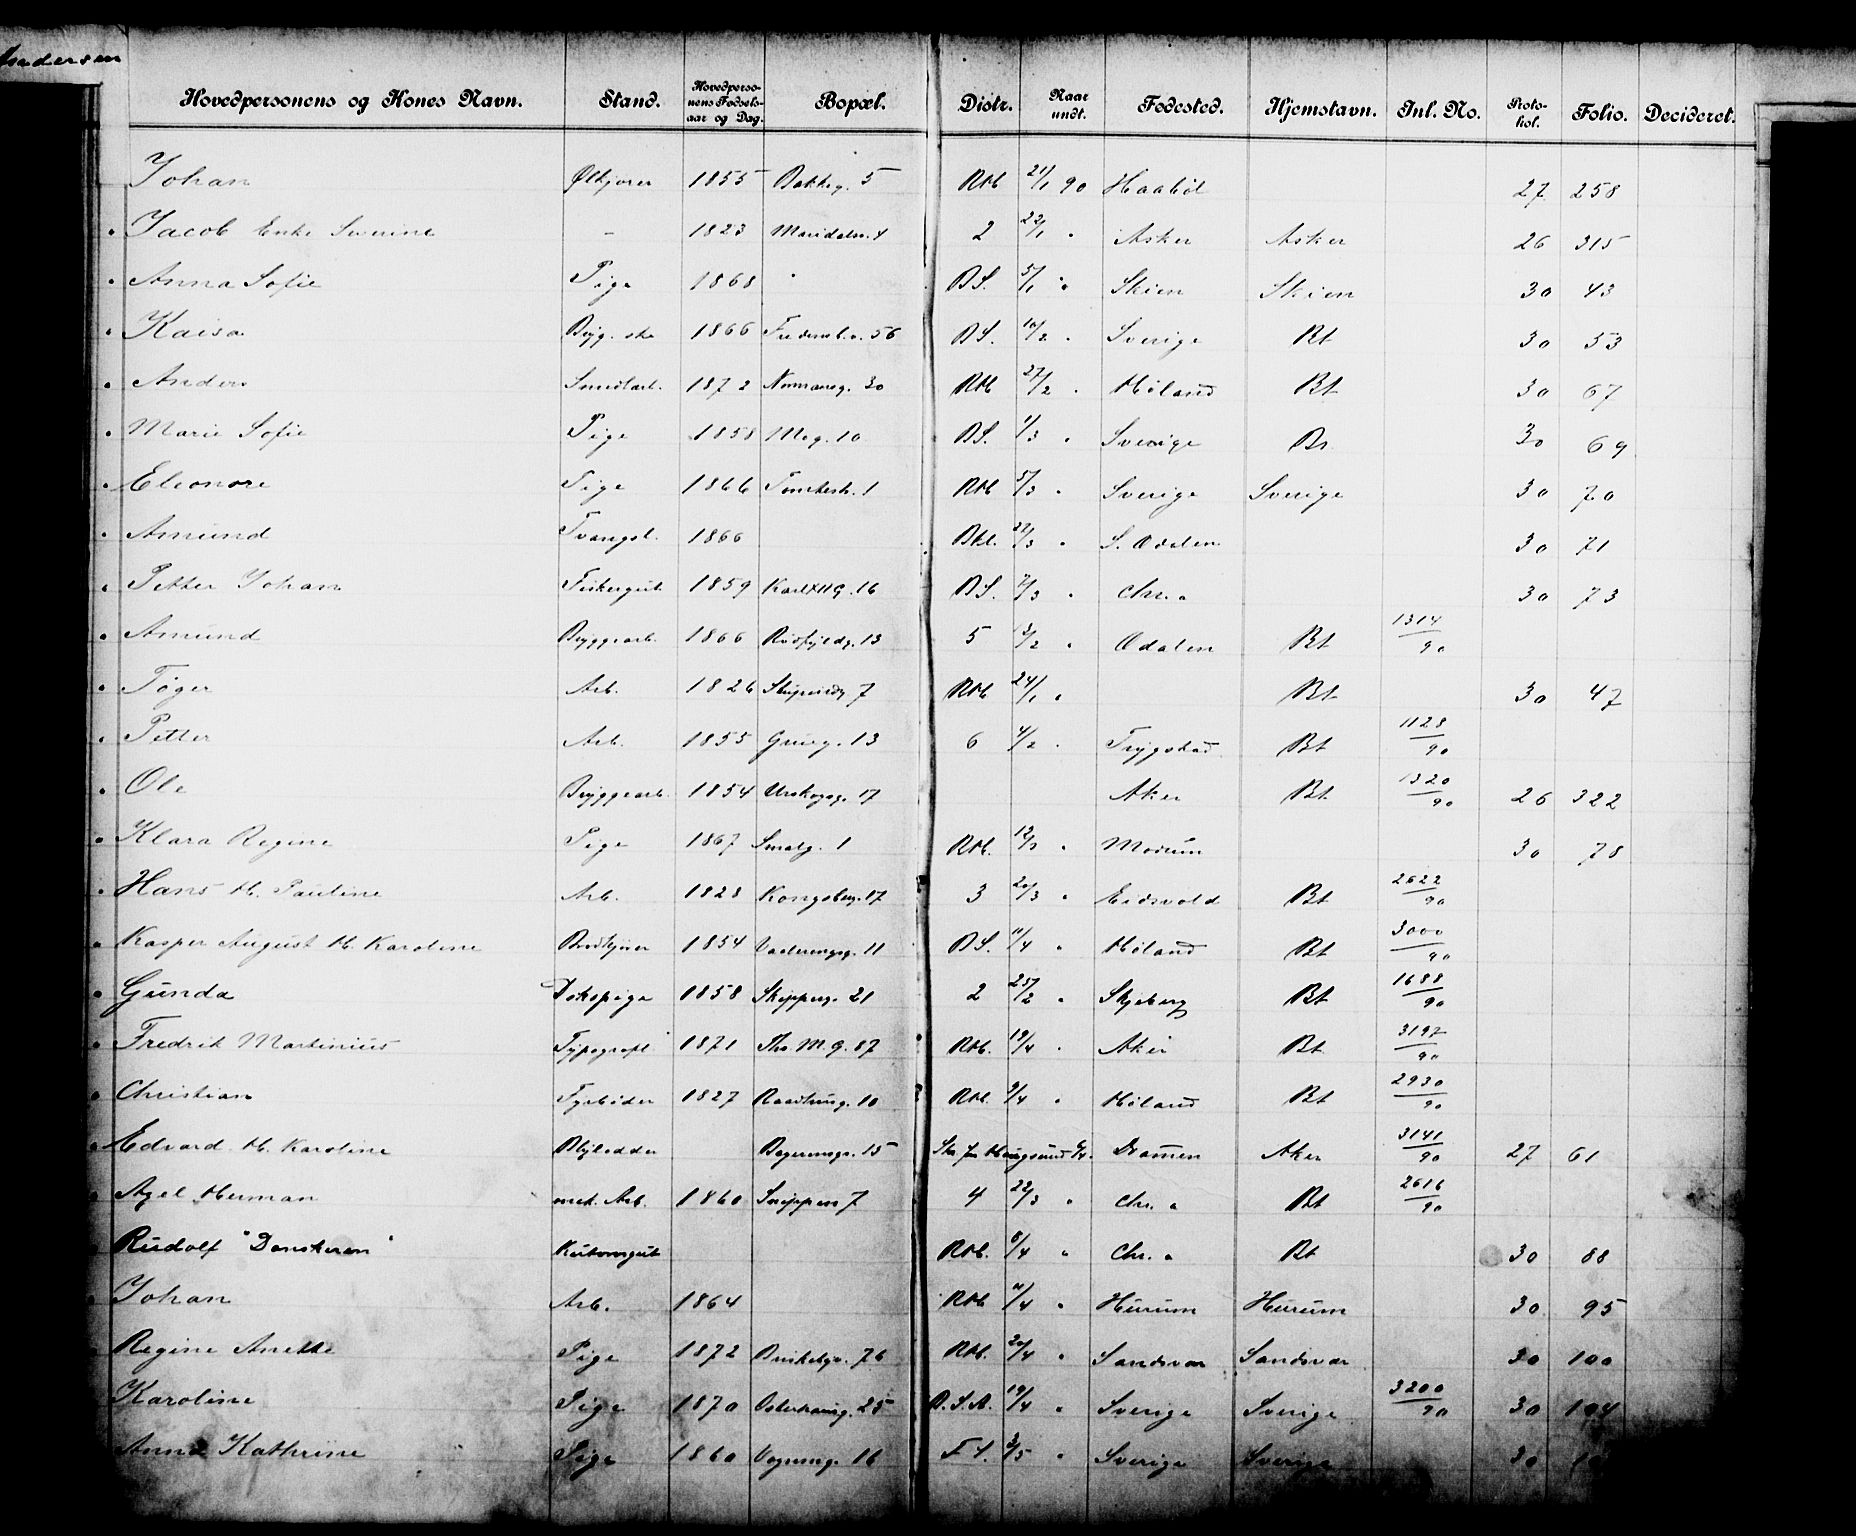 Andersen
Hovedpersonens og Kones Navn. Stand. Hovedpersonens Fødselsaar og Dag. Bopæl. Distr. Naar undt. Fødested. Hjemstavn. Inl. No. Protokol. Folio. Decideret.
Johan Ølkjører 1855 Bakkeg. 5 Rtb 21/1 90 Haabøl 27 258
Jacob Enke Severine - 1823 Maridalsv. 4 2 22/1 " Asker Asker 26 315
Anna Sofie Pige 1868 " BS. 5/1 " Skien Skien 30 43
Kaisa Bryg. 1866 56 BS. 10/2 " Sverige Bt 30 53
Anders Smedarb. 1872 Normannsg. 30 Rtb 27/2 " Høland Bt 30 67
Marie Sofie Pige 1858 Møg. 10 BS. 1/3 " Sverige Bt 30 69
Eleonore Pige 1866 Tomtestr. 1 Rtb 5/3 " Sverige Sverige 30 70
Amund Tvangsl. 1866 Bkl. 22/3 " S. Odalen 30 71
Petter Johan Fiskergut 1859 Karl XII G. 16 BS. 7/3 " Chr. a 30 73
Amund Bryggearb. 1866 Rødfyldg. 13 5 13/2 " Odalen Bt 1314/90
Tøger Arb. 1826 7 Rtb 24/1 " Bt 30 47
Petter Arb. 1855 Grueg. 13 6 4/2 " Trygstad Bt 1128/90
Ole Bryggearb. 1854 Urskogsg. 17 Aker Bt 1320/90 26 322
Klara Regine Pige 1867 Smalg. 1 Rtb. 12/3 " Modum 30 78
Hans H. Pauline Arb. 1828 Kongsberg. 17 3 20/3 " Eidsvold Bt 2622/90
Kasper August H. Karoline Brødkjører 1854 Vaalerengsg. 11 BS. 11/4 " Høland Bt 3000/90
Gunda 1858 Skipperg. 21 2 25/2 " Skjeberg Bt 1688/90
Fredrik Martinius Typograf 1871 Ths. M. g. 87 Rtb. 19/4 " Aker Bt 3197/90
Christian Fyrbøder 1827 10 Rtb. 9/4 " Høland Bt 2930/90
Edvard H. Karoline 15 Haugsund Drammen Aker 3141/90 27 61
Axel Herman mek. Arb. 1860 Sneppen 7 4 22/3 " Chr. a Bt 2616/90
Rudolf "Danskeren" Rtb. 8/4 " Chr. a Bt 30 88
Johan Arb. 1864 Rtb 11/4 " Hurum Hurum 30 95
Regine Anette Pige 1872 Briskebyv. 76 Rtb. 20/4 " Sandsvær Sandsvær 30 100
Karoline Pige 1870 Osterhausg. 25 B.S.A. 19/4 " Sverige Sverige 3200/90 30 104
Anna Kathrine Pige 1860 Vognmg. 16 F S. 3/5 " Sverige Sverige 30